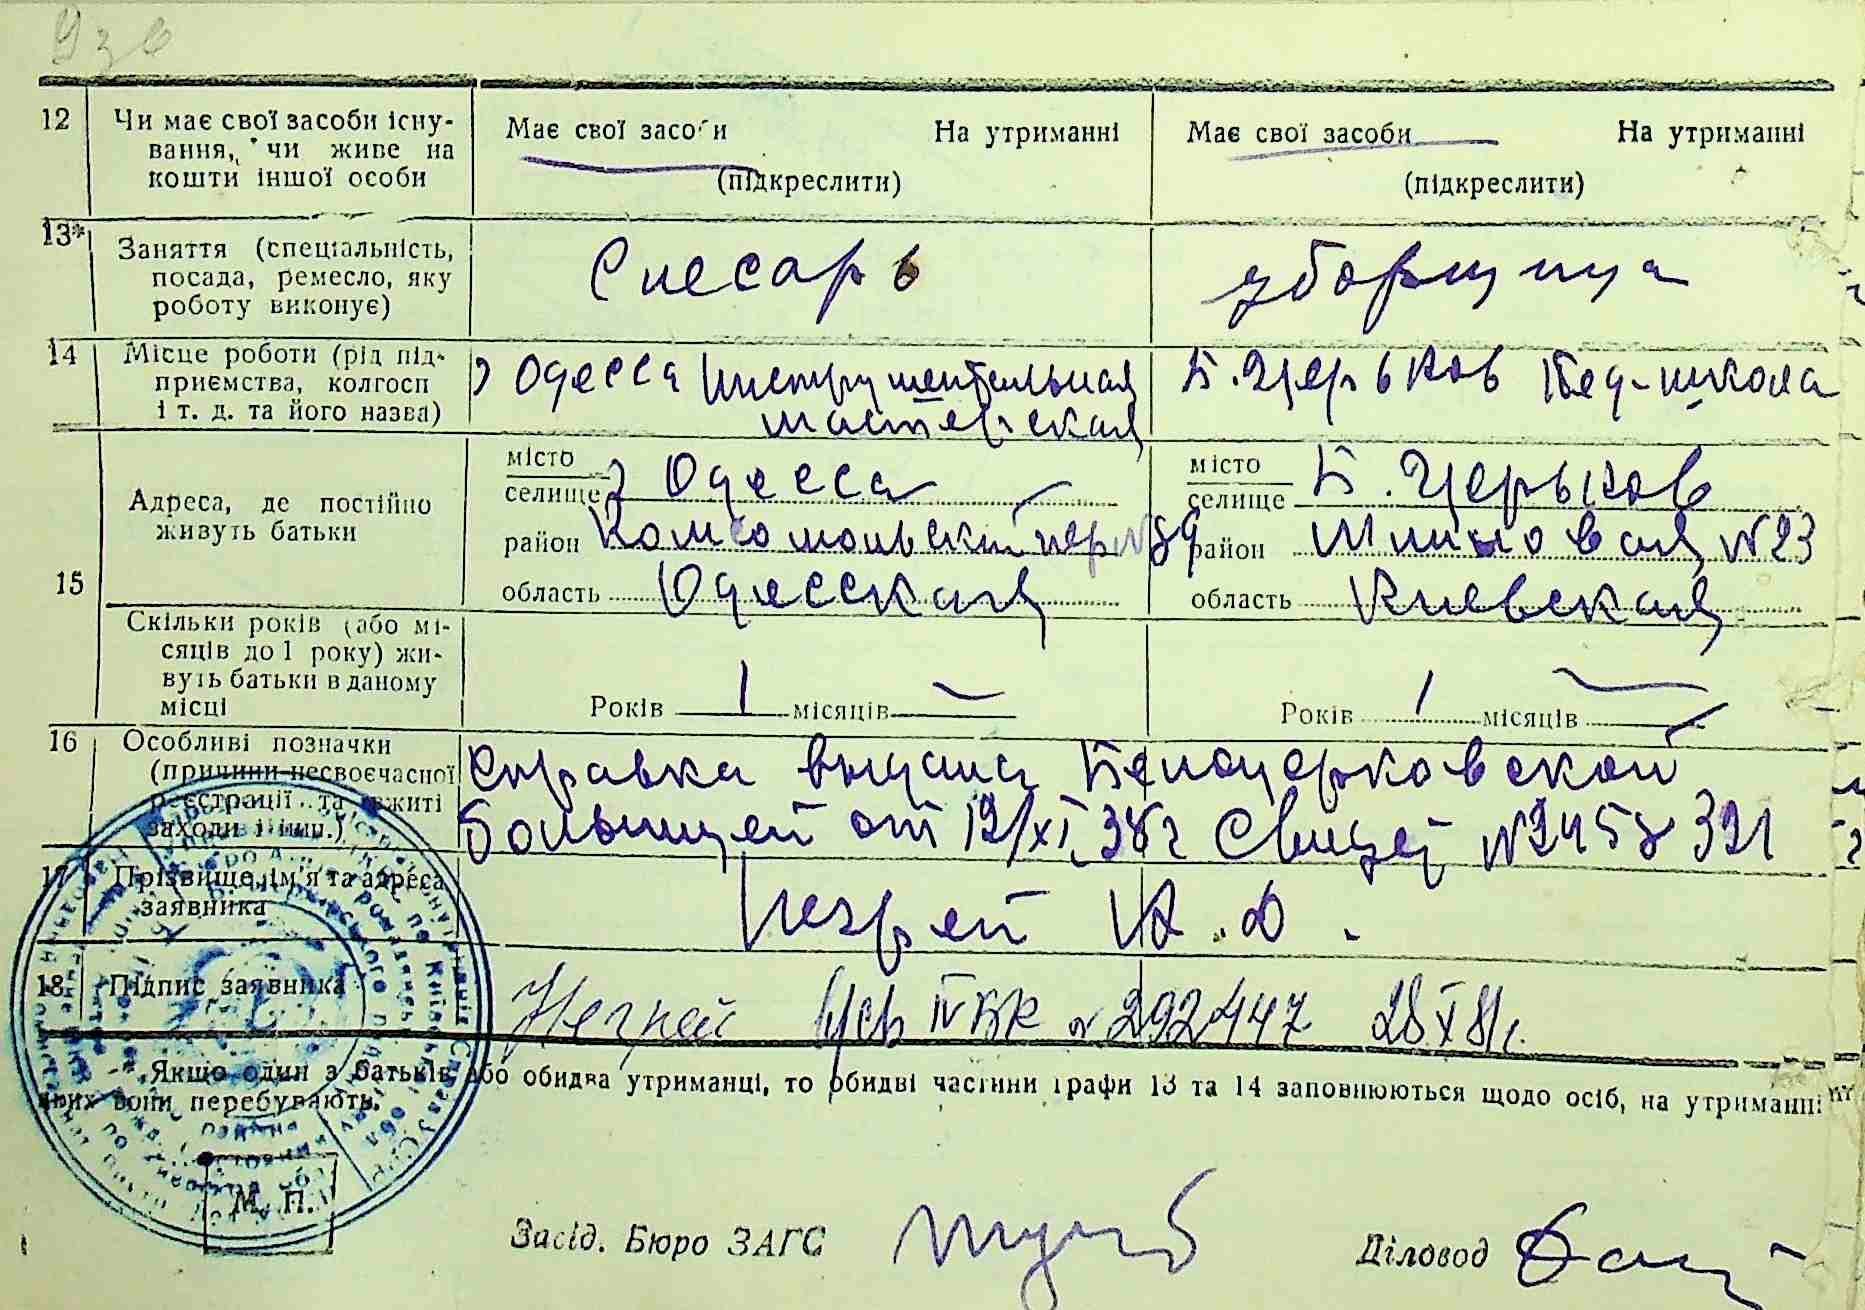 12 Чи має свої засоби існу-
вання, чи живе на
кошти іншої особи
Має свої засоби На утриманні
(підкреслити)
Має свої засоби На утриманні
(підкреслити)
13* Заняття (спеціальність,
посада, ремесло, яку
роботу виконує)
Слесарь
уборщица
14 Місце роботи (рід під-
приємства, колгосп
і т. д. та його назва)
г Одесса Инструментальная
мастерская
Б. Церьков Пед-школа
15
Адреса, де постійно
живуть батьки
місто
селище г Одесса
район Комсомольский пер №89
область Одесская
місто
селище Б. Церьков
район №23
область Киевская
Скільки років (або мі-
сяців до 1 року) жи-
вуть батьки в даному
місці
Років 1 місяців —
Років 1 місяців —
16 Особливі позначки
(причини несвоєчасної
реєстрації та вжиті
заходи і інш.)
справка выдана Белоцерковской
больницей от 12/XI 38г №
17 Прізвище, ім'я та адреса
заявника
К. Д.
18 Підпис заявника
№ 292447 28 XI 81г.
Якщо один з батьків або обидва утриманці, то обидві частини графи 13 та 14 заповнюються щодо осіб, на утриманні
яких вони перебувають.
М. П.
Засід. Бюро ЗАГС
Діловод